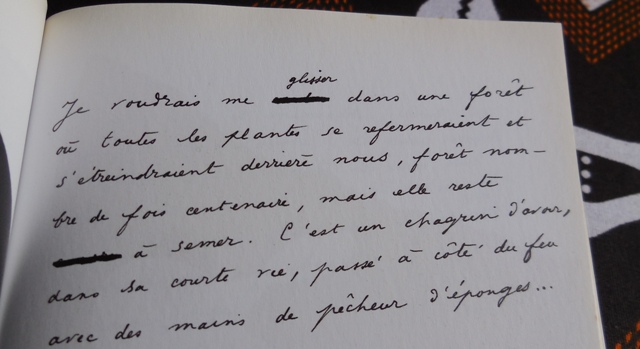 glisser
Je voudrais me dans une forêt
où toutes les plantes se refermeraient et
s'étreindraient derrière nous, forêt nom-
bre de fois centenaire, mais elle reste
à semer. C'est un chagrin d'avoir,
dans sa courte vie, passé à côté du feu
avec des mains de pêcheur d'éponges...